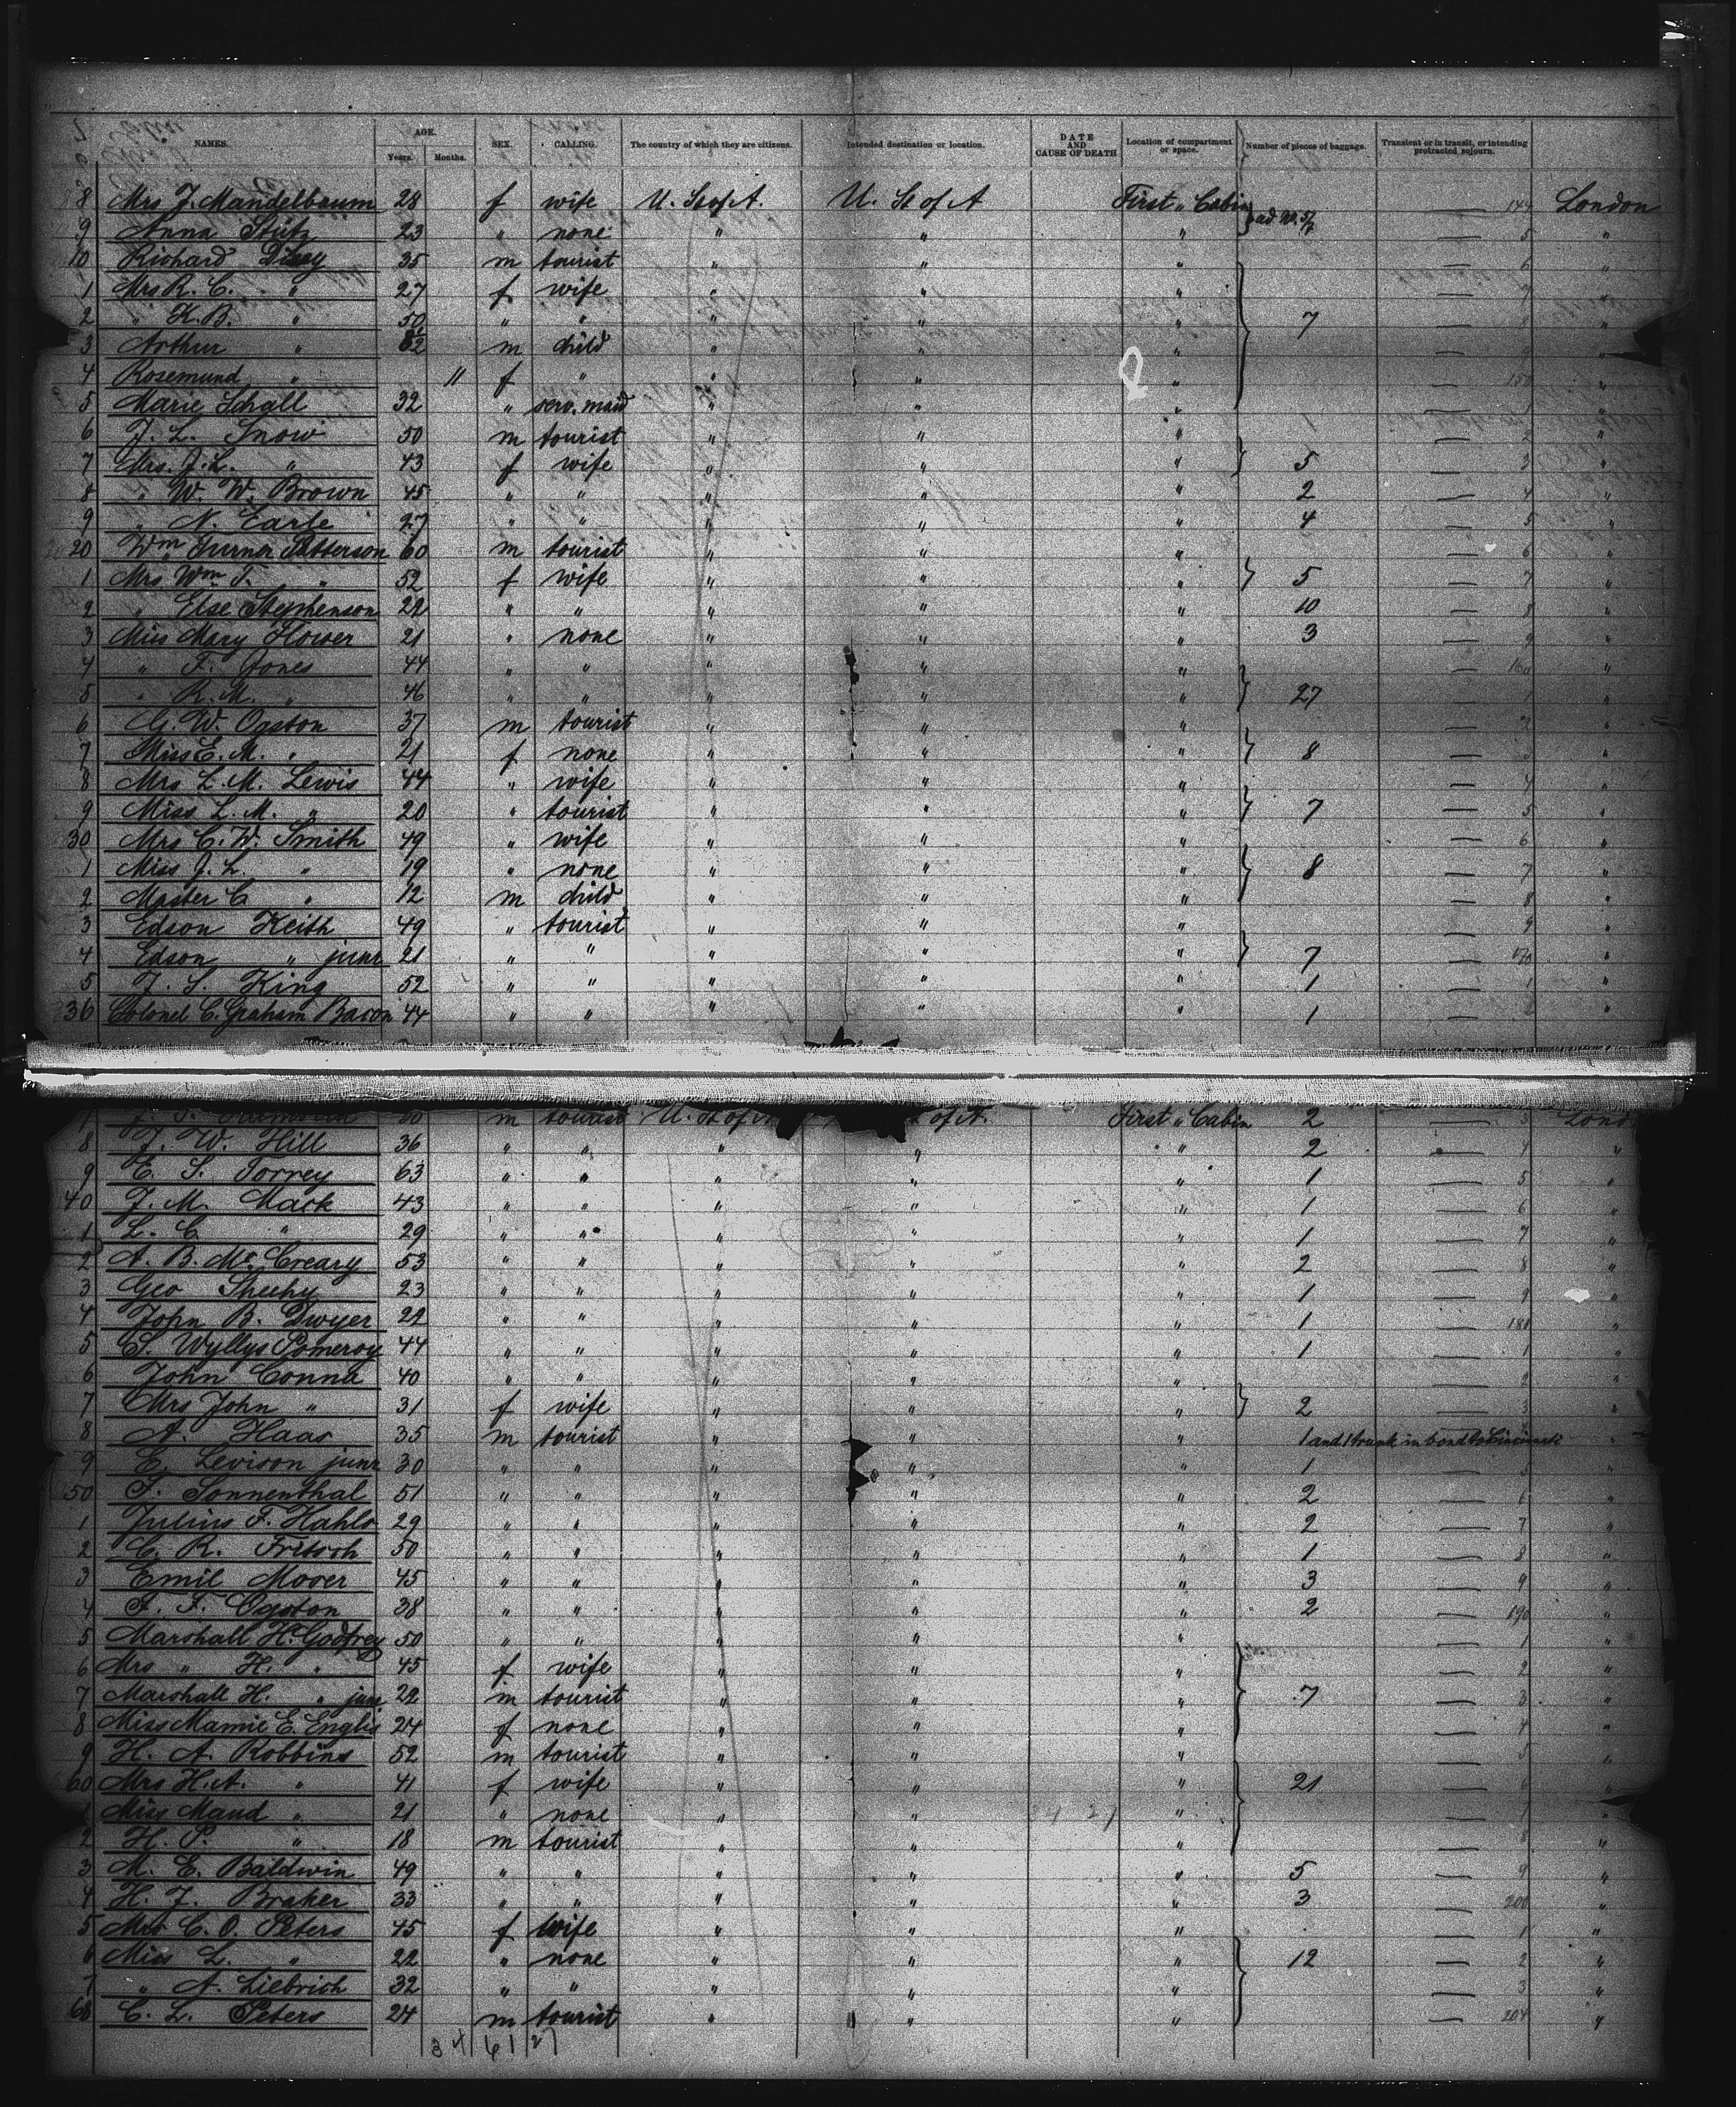 NAMES. AGE. SEX. CALLING. The country of which they are citizens. Intended destination or location. DATE AND CAUSE OF DEATH Location of compartment or space. Number of pieces of baggage. Transient or in transit, or intending protracted sojourn.
Years. Months.
8 Mrs J. Mandelbaum 28 f wife U. St of A. U. St of A First " Cabin — 144 London
9 Anna Stütz 23 " none " " " — 5 "
10 Richard 35 m tourist " " " — 6 "
1 Mrs R. C. " 27 f wife " " " — 7 "
2 " K. B. " 50 " " " " " 7 — 8 "
3 Arthur " m child " " " — 9 "
4 Rosemund " 11 f " " " " — 150 "
5 Marie Schall 32 " serv. maid " " " 1 — 1 "
6 J. L. Snow 50 m tourist " " " — 2 "
7 Mrs. J. L. " 43 f wife " " " 5 — 3 "
8 " W. W. Brown 45 " " " " " 2 — 4 "
9 " N. Earle 27 " " " " " 4 — 5 "
20 Wm Turner Patterson 60 m tourist " " " — 6 "
1 Mrs Wm T. " 52 f wife " " " 5 — 7 "
2 " Else Stephenson 22 " " " " " 10 — 8 "
3 Miss Mary Flower 21 " none " " " 3 — 9 "
4 " F. Jones 44 " " " " " — 160 "
5 " R. M. " 46 " " " " " 27 — 1 "
6 G. W. Ogston 37 m tourist " " " — 2 "
7 Miss E. M. " 21 f none " " " 8 — 3 "
8 Mrs L. M. Lewis 44 " wife " " " — 4 "
9 Miss L. M. " 20 " tourist " " " 7 — 5 "
30 Mrs C. W. Smith 49 " wife " " " — 6 "
1 Miss J. L. " 19 " none " " " 8 — 7 "
2 Master C " 12 m child " " " — 8 "
3 Edson Keith 49 " tourist " " " — 9 "
4 Edson " junr 21 " " " " " 7 — 170 "
5 J. S. King 52 " " " " " 1 — 1 "
36 Colonel C. Graham Bacon 44 " " " " " 1 — 2 "
m tourist U. St of First " Cabin 2 — 3 Lond
8 J. W. Hill 36 " " " " " 2 — 4 "
9 E. S. Torrey 63 " " " " " 1 — 5 "
40 J. M. Mack 43 " " " " " 1 — 6 "
1 L. C. " 29 " " " " " 1 — 7 "
2 A. B. McCreary 53 " " " " " 2 — 8 "
3 Geo Sheehy 23 " " " " " 1 — 9 "
4 John B. Dwyer 22 " " " " " 1 — 180 "
5 S. Wyllys Pomeroy 44 " " " " " 1 — 1 "
6 John Conna 40 " " " " " — 2 "
7 Mrs John " 31 f wife " " " 2 — 3 "
8 A. Haas 35 m tourist " " " 1 and 1 trunk in bond to "
9 E. Levison junr 30 " " " " " 1 — 5 "
50 S. Sonnenthal 51 " " " " " 2 — 6 "
1 Julius F. Hahlo 29 " " " " " 2 — 7 "
2 C. R. Fritsch 50 " " " " " 1 — 8 "
3 Emil Moser 45 " " " " " 3 — 9 "
4 A. F. Ogston 38 " " " " " 2 — 190 "
5 Marshall H. Godfrey 50 " " " " " — 1 "
6 Mrs " H. " 45 f wife " " " — 2 "
7 Marshall H. " junr 22 m tourist " " " 7 — 3 "
8 Miss Mamie E. Englis 24 f none " " " — 4 "
9 H. A. Robbins 52 m tourist " " " — 5 "
60 Mrs H. A. " 41 f wife " " " 21 — 6 "
1 Miss Maud " 21 " none " " 34 27 " — 7 "
2 H. P. " 18 m tourist " " " — 8 "
3 M. E. Baldwin 49 " " " " " 5 — 9 "
4 H. J. Braker 33 " " " " " 3 — 200 "
5 Mrs C. O. Peters 45 f wife " " " — 1 "
6 Miss L. " 22 " none " " " 12 — 2 "
7 " A. Liebrich 32 " " " " " — 3 "
68 C. L. Peters 24 m tourist " " " — 204 "
34 61 27